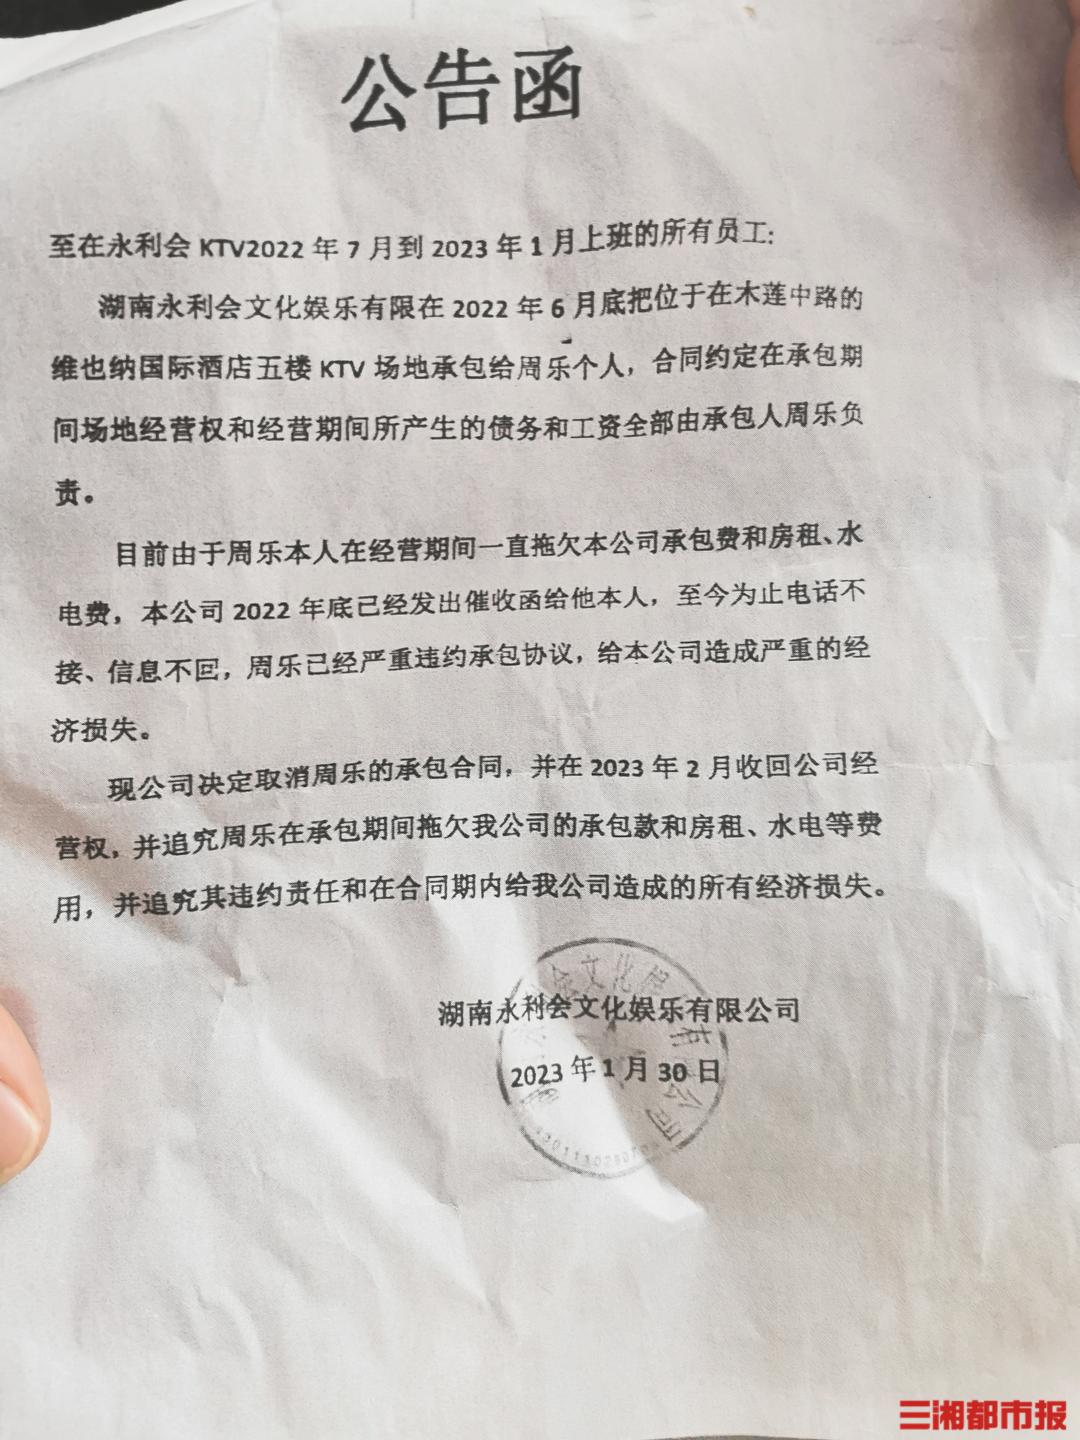 公告函
至在永利会 KTV2022 年 7 月到 2023 年 1 月上班的所有员工:
湖南永利会文化娱乐有限在 2022 年 6 月底把位于在木莲中路的
维也纳国际酒店五楼 KTV 场地承包给周乐个人，合同约定在承包期
间场地经营权和经营期间所产生的债务和工资全部由承包人周乐负
责。
目前由于周乐本人在经营期间一直拖欠本公司承包费和房租、水
电费，本公司 2022 年底已经发出催收函给他本人，至今为止电话不
接、信息不回，周乐已经严重违约承包协议，给本公司造成严重的经
济损失。
现公司决定取消周乐的承包合同，并在 2023 年 2 月收回公司经
营权，并追究周乐在承包期间拖欠我公司的承包款和房租、水电等费
用，并追究其违约责任和在合同期内给我公司造成的所有经济损失。
湖南永利会文化娱乐有限公司
2023 年 1 月 30 日
三湘都市报